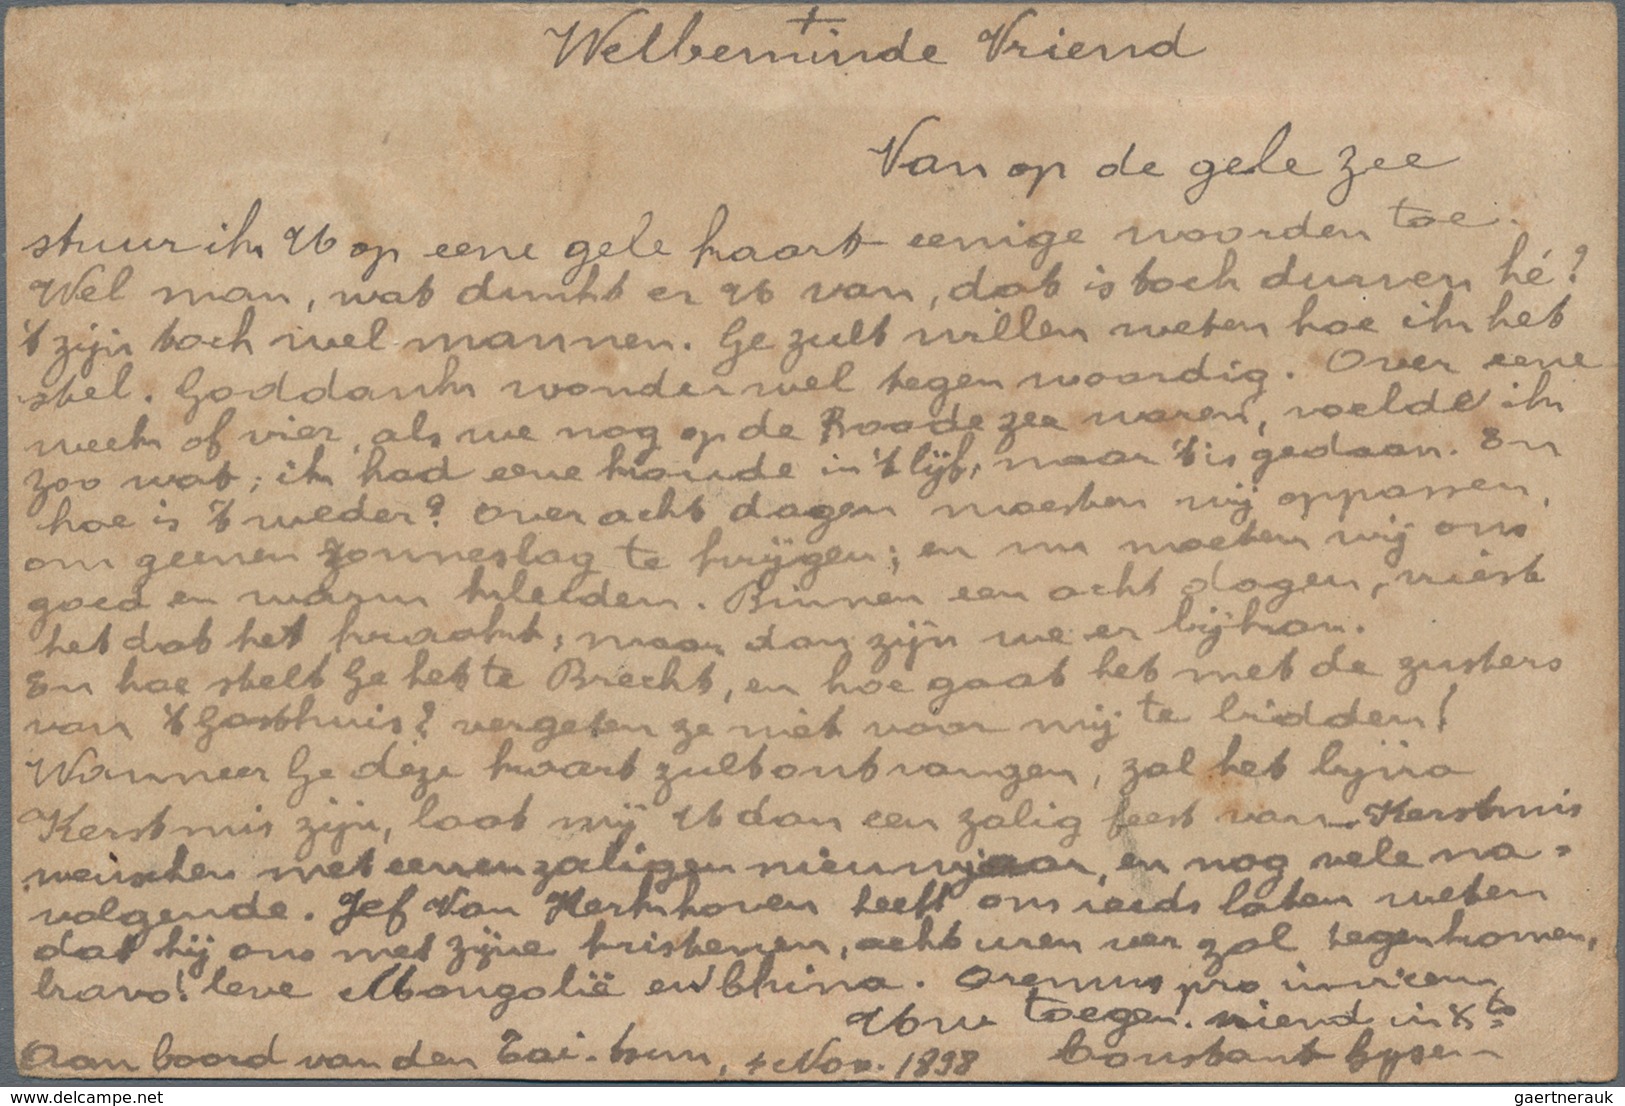 +
Welbeminde Vriend
Van op de gele zee
stuur ik U op eene gele kaart eenige woorden toe.
Wel man, wat dunkt er U van, dat is toch durven hé?
't zijn toch wel mannen. Ge zult willen weten hoe ik het
stel. Goddank wonderwel tegenwoordig. Over eene
week of vier, als we nog op de Roode zee waren, voelde ik
zoo wat; ik had eene koude in 't lijf, maar 't is gedaan. En
hoe is 't weder? Over acht dagen moesten wij oppassen,
om geenen zonneslag te krijgen; en nu moeten wij ons
goed en warm kleeden. Binnen een acht dagen, vriest
het dat het kraakt; maar dan zijn we er bijkan.
En hoe stelt Ge het te Brecht, en hoe gaat het met de zusters
van 't Gasthuis? vergeten ze niet voor mij te bidden!
Wanneer Ge deze kaart zult ontvangen, zal het bijna
Kerstmis zijn, laat mij U dan een zalig feest van Kerstmis
wenschen met eenen zaligen nieuwjaar, en nog vele na-
volgende. Jef Van Herkhoven heeft ons reeds laten weten
dat hij ons met zijne kristenen, acht uren ver zal tegenkomen,
bravo! leve Mongolië en China. Oremus pro invicem
Uw toegen. vriend in Xto
Aan boord van den Tai-tsun, 4 Nov. 1898 Constant
gaertnerauk